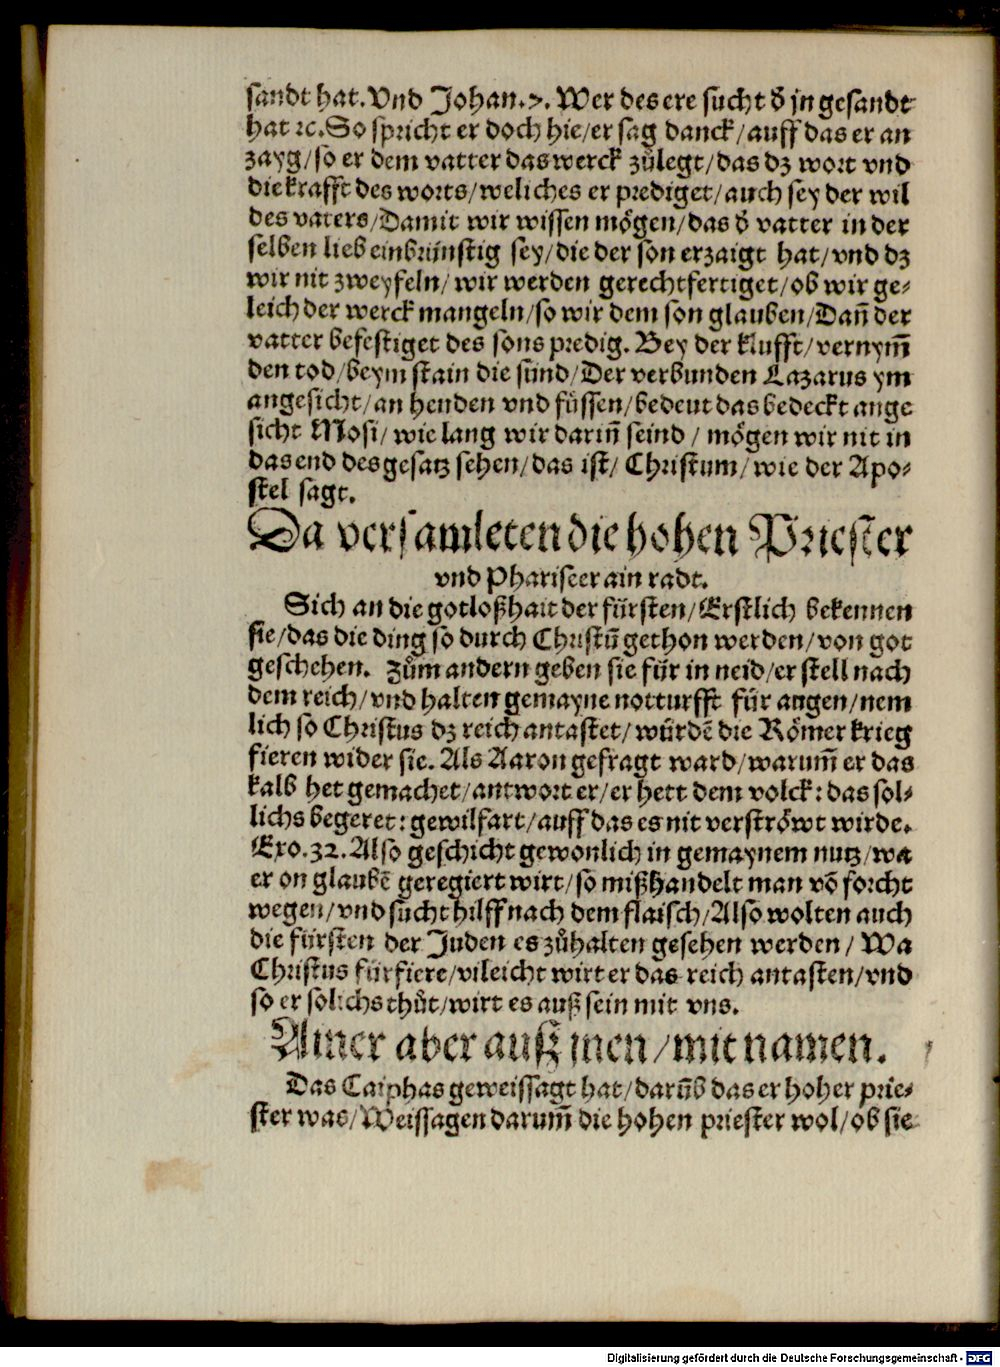 sandt hat. Vnd Johan. 7. Wer des ere sucht d̄ jn gesandt
hat ⁊c. So spricht er doch hie/ er sag danck/ auff das er an
zayg/ so er dem vatter das werck zůlegt/ das dz wort vnd
die krafft des worts/ weliches er prediget/ auch sey der wil
des vaters/ Damit wir wissen mögen/ das d̄ vatter in der
selben lieb einbrünstig sey/ die der son erzaigt hat/ vnd dz
wir nit zweyfeln/ wir werden gerechtfertiget/ ob wir ge⸗
leich der werck mangeln/ so wir dem son glauben/ Dañ der
vatter befestiget des sons predig. Bey der klufft/ vernym̄
den tod/ beym stain die sünd/ Der verbunden Lazarus ym
angesicht/ an henden vnd füssen/ bedeut das bedeckt ange
sicht Mosi/ wie lang wir dariñ seind / mögen wir nit in
das end des gesatz sehen/ das ist/ Christum/ wie der Apo⸗
stel sagt.
Da versamleten die hohen Priester
vnd Phariseer ain radt.
Sich an die gotloßhait der fürsten/ Erstlich bekennen
sie/ das die ding so durch Christū gethon werden/ von got
geschehen. Zům andern geben sie für in neid/ er stell nach
dem reich/ vnd halten gemayne notturfft für augen/ nem
lich so Christus dz reich antastet/ würdē die Römer krieg
fieren wider sie. Als Aaron gefragt ward/ warum̄ er das
kalb het gemachet/ antwort er/ er hett dem volck: das sol⸗
lichs begeret: gewilfart/ auff das es nit verströwt wirde.
Exo. 32. Also geschicht gewonlich in gemaynem nutz/ wa
er on glaubē geregiert wirt/ so mißhandelt man vō forcht
wegen/ vnd sucht hilff nach dem flaisch/ Also wolten auch
die fürsten der Juden es zůhalten gesehen werden/ Wa
Christus fürfiere/ vileicht wirt er das reich antasten/ vnd
so er solichs thůt/ wirt es auß sein mit vns.
Ainer aber auß jnen/ mit namen.
Das Caiphas geweissagt hat/ darūb das er hoher prie⸗
ster was/ Weissagen darum̄ die hohen priester wol/ ob sie
Digitalisierung gefördert durch die Deutsche Forschungsgemeinschaft - DFG